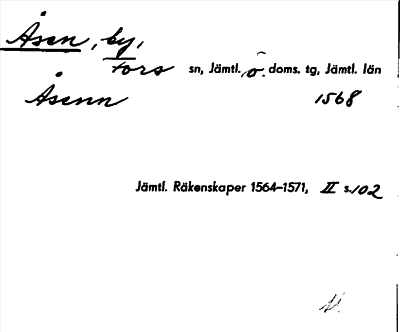 Åsen, by,
Fors sn, Jämtl. ö. doms. tg, Jämtl. län
Åsenn 1568
Jämtl. Räkenskaper 1564–1571, II s. 102